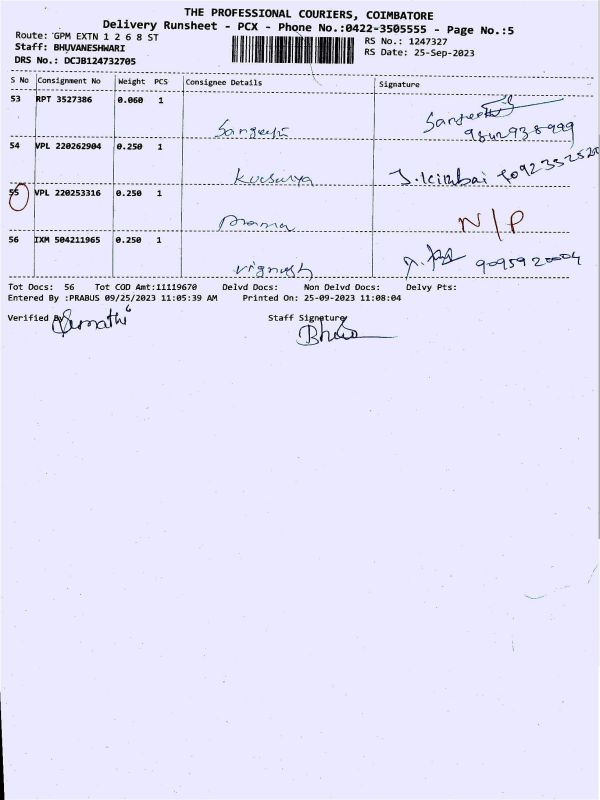 THE PROFESSIONAL COURIERS, COIMBATORE
Delivery Runsheet - PCX - Phone No.:0422-3505555 - Page No.:5
Route: GPM EXTN 1 2 6 8 ST
RS No.: 1247327
Staff: BHUVANESHWARI
RS Date: 25-Sep-2023
DRS No.: DCJB124732705
S No Consignment No Weight PCS Consignee Details Signature
53 RPT 3527386 0.060 1
Sangeeth
54 VPL 220262904 0.250 1
55 VPL 220253316 0.250 1
N/P
56 IXM 504211965 0.250 1
Vignesh 9095920004
Tot Docs: 56 Tot COD Amt:11119670 Delvd Docs: Non Delvd Docs: Delvy Pts:
Entered By :PRABUS 09/25/2023 11:05:39 AM Printed On: 25-09-2023 11:08:04
Verified By Staff Signature
Sumathi